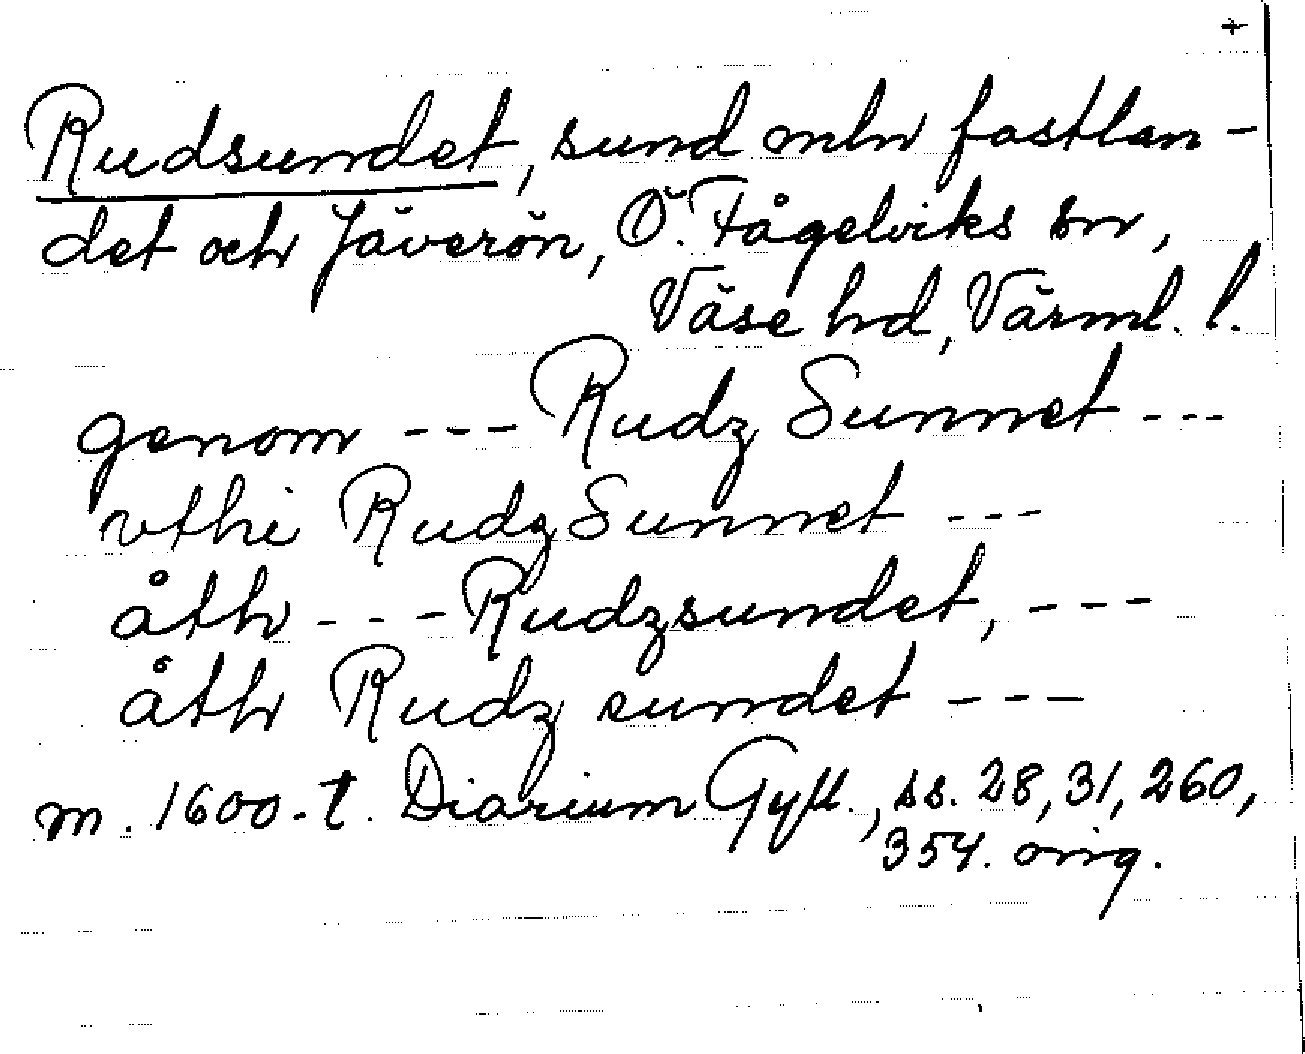 +
Rudsundet, sund mln fastlan-
det och Jäverön, Ö. Fågelviks sn,
Väse hd, Värml. l.
genom --- Rudz Sunnet ---
vthi Rudz Sunnet ---
åth --- Rudzsundet, ---
åth Rudz sundet ---
m. 1600-t. Diarium Gyll., ss. 28, 31, 260,
354. orig.